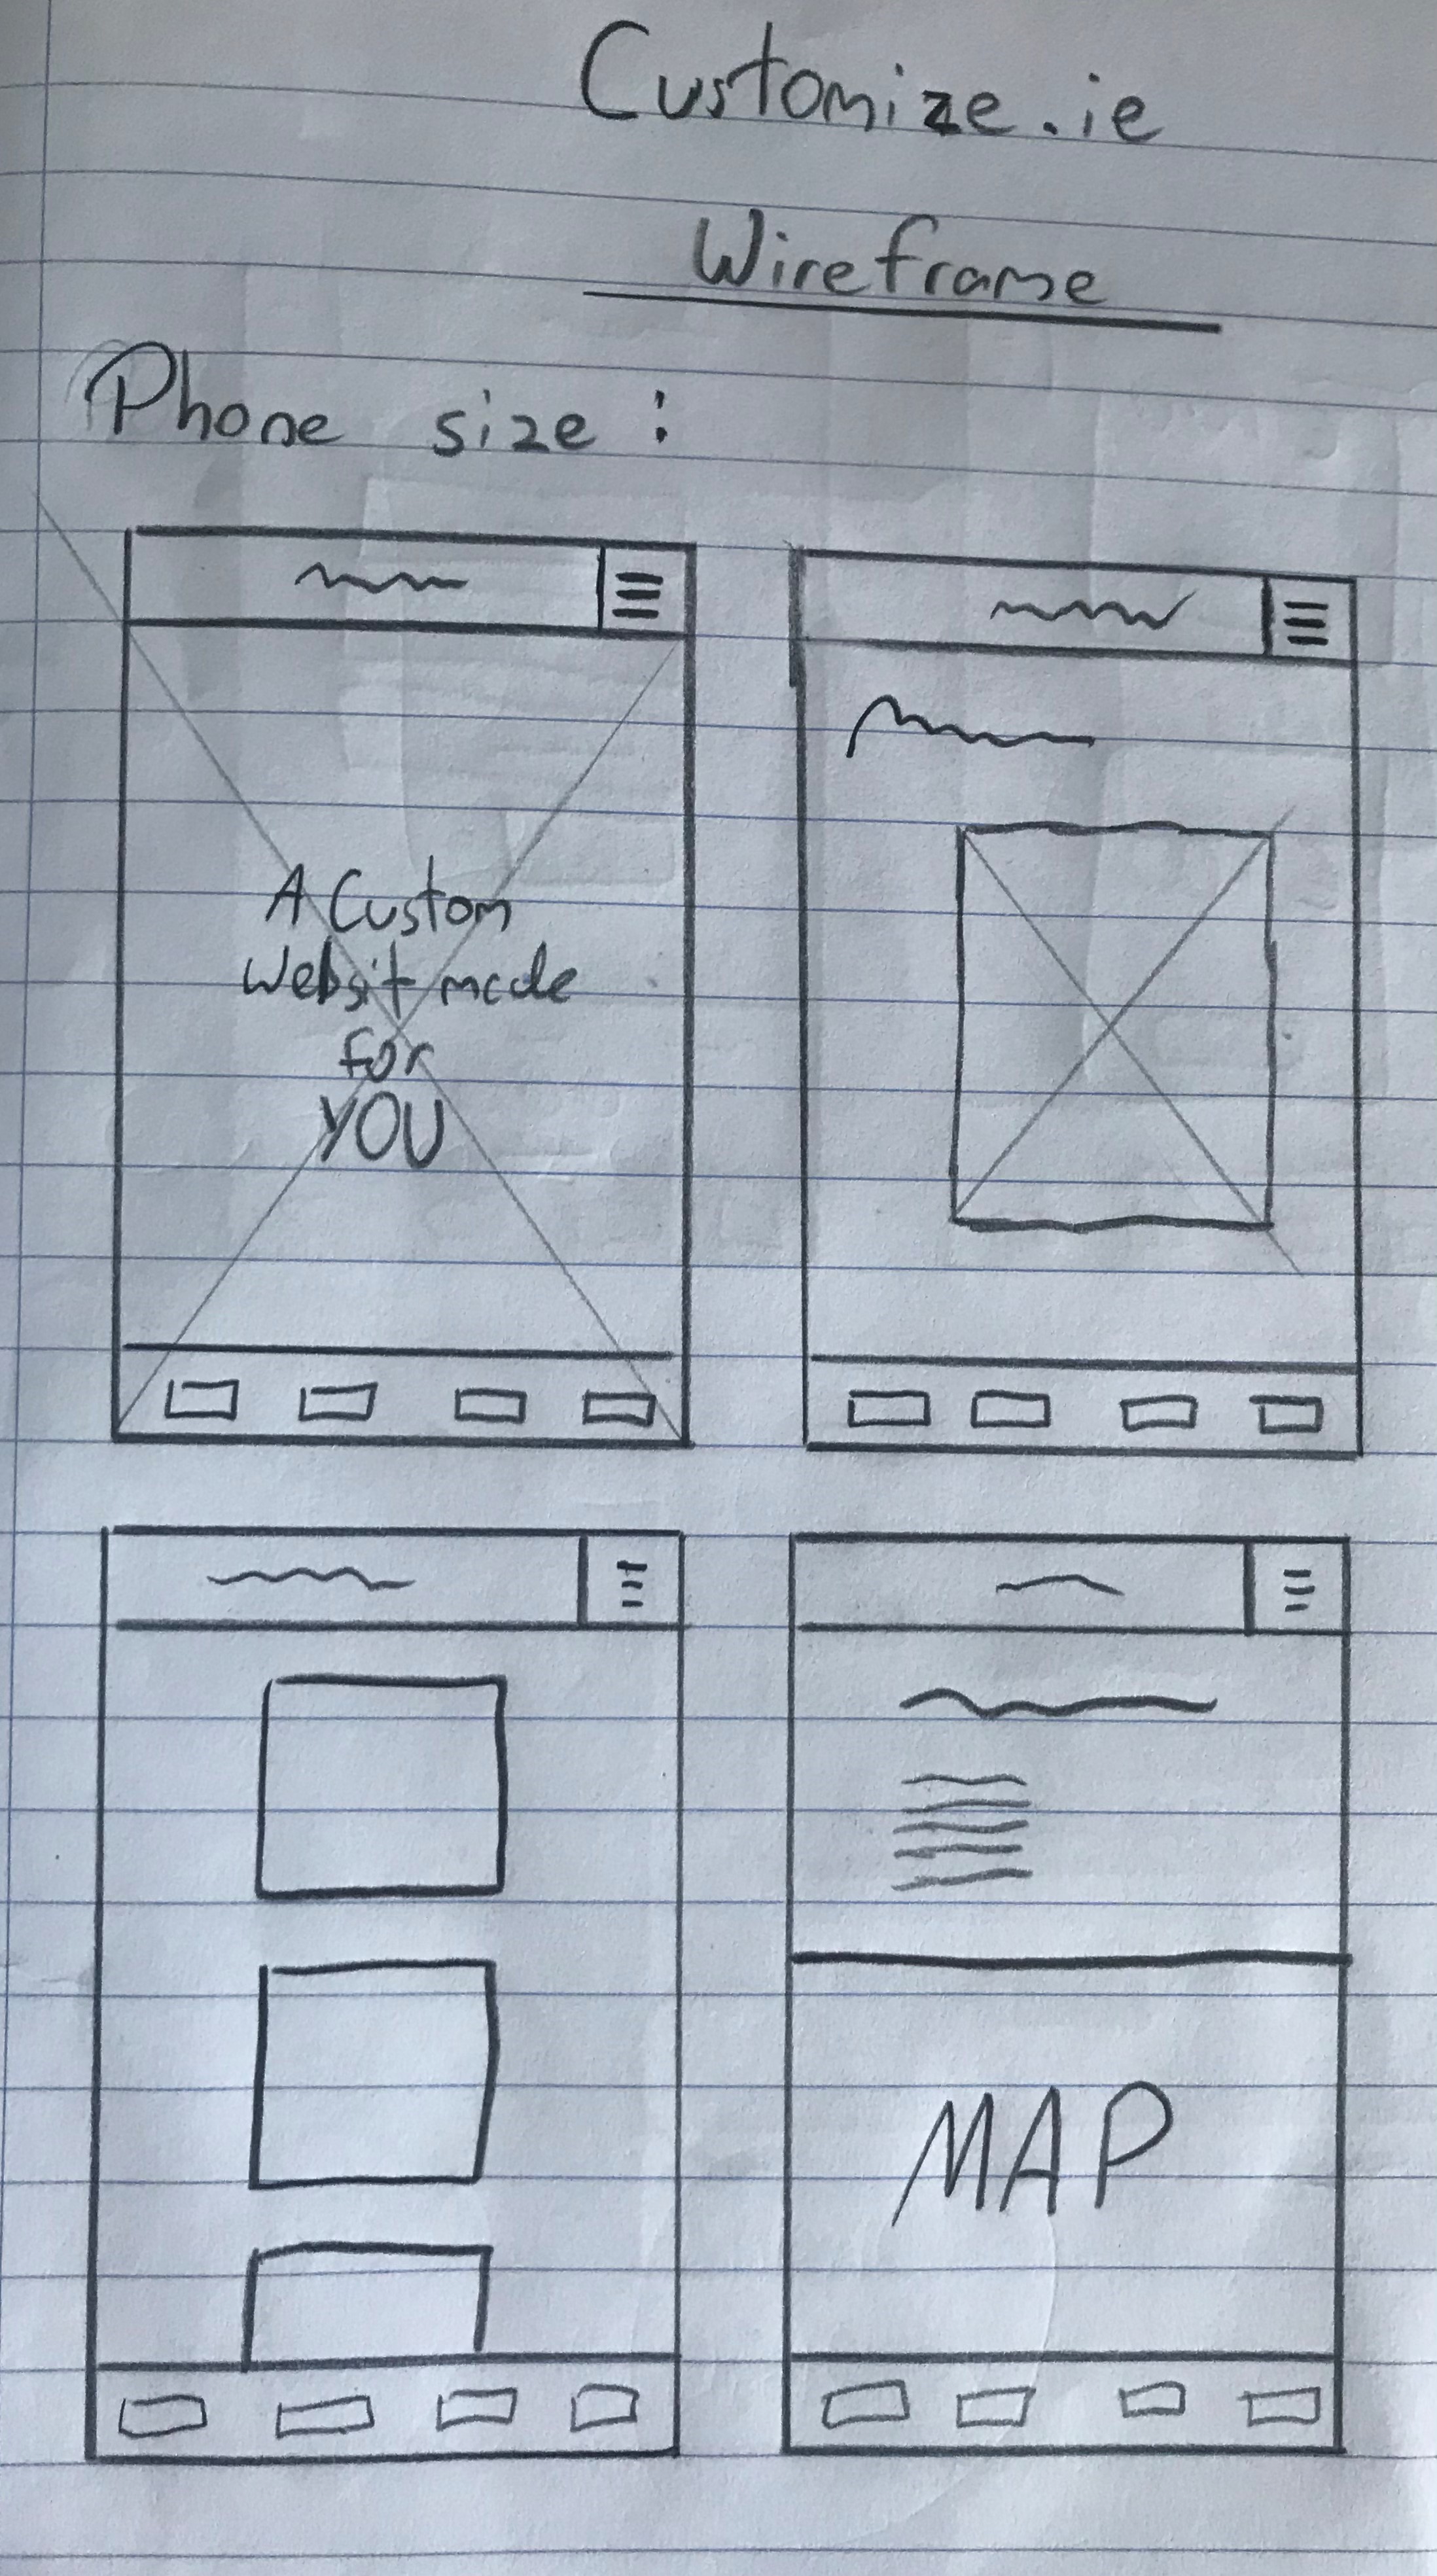 Customize.ie
Wireframe
Phone size :
A Custom
Websit made
for
YOU
MAP